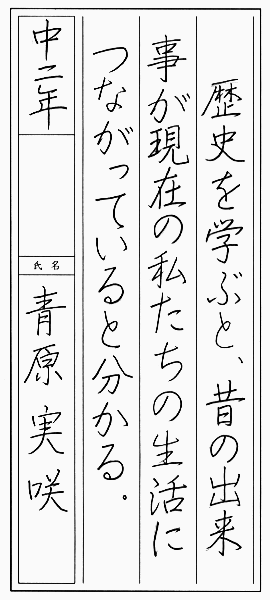 歴史を学ぶと、昔の出来
事が現在の私たちの生活に
つながっていると分かる。
中二年
氏名
青原実咲